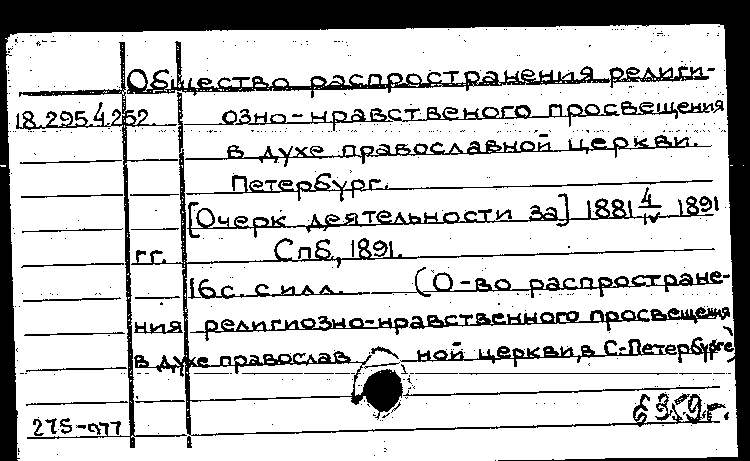 Общество распространения религи-
18.295.4.252. озно-нравственого просвещения
в духе православной церкви.
Петербург.
[Очерк деятельности за] 1881 4/IV 1891
гг. Спб, 1891.
16с. с илл. (О-во распростране-
ния религиозно-нравственного просвещения
в духе православ ной церкви, в С.-Петербурге)
275-077